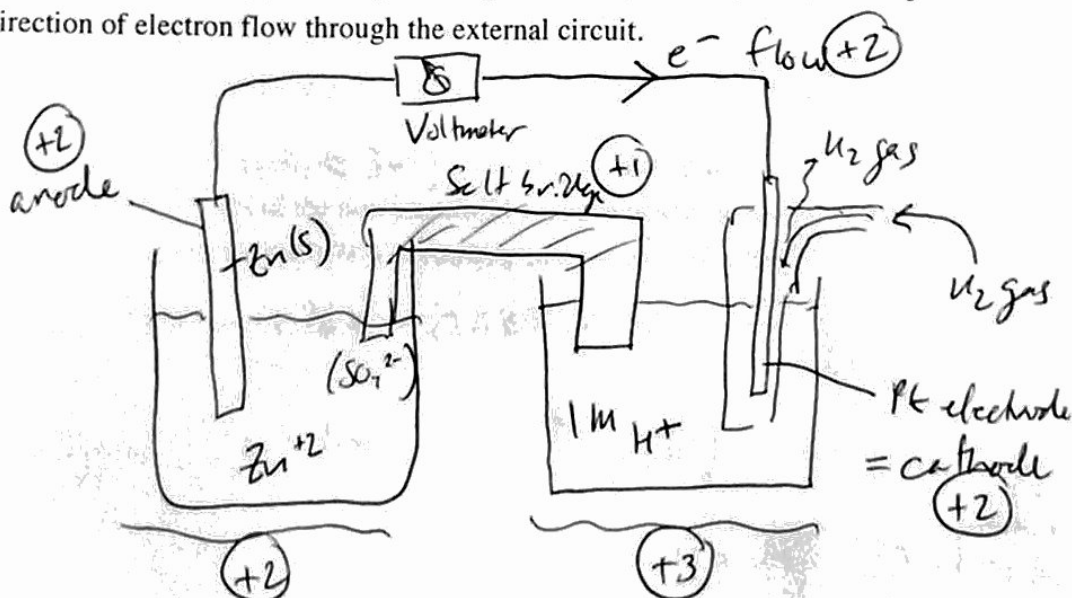 irection of electron flow through the external circuit.
e⁻ flow +2
Voltmeter
+2
anode
Salt bridge +1
H₂ gas
Zn(s)
H₂ gas
(SO₄²⁻)
Zn⁺²
1M H⁺
Pt electrode
= cathode
+2
+2
+3